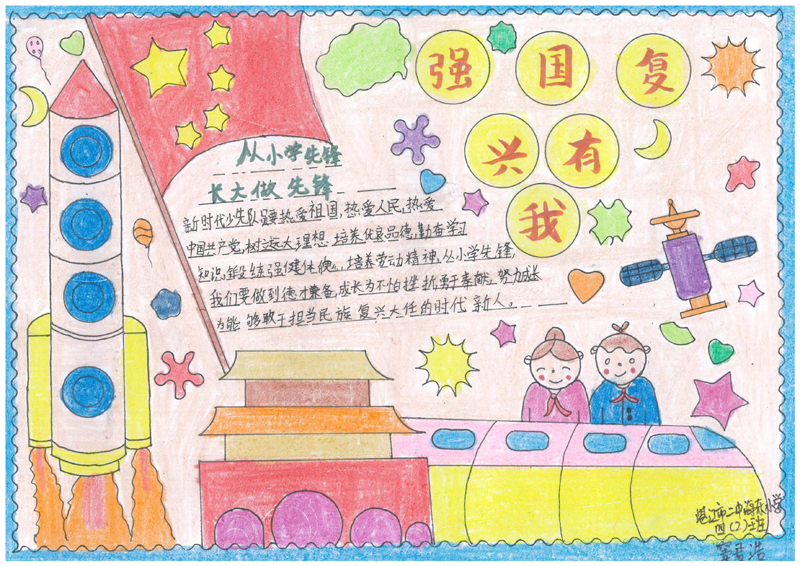 强国复
兴有
我
从小学先锋
长大做先锋
新时代少先队员要热爱祖国，热爱人民，热爱
中国共产党，树立远大理想，培养优良品德，勤奋学习
知识，锻练强健体魄，培养劳动精神，从小学先锋，
我们要做到德才兼备，成长为不怕挫折勇于奉献，努力成长
为能够敢于担当民族复兴大任的时代新人。
湛江市二中海东小学
四（2）班
浩